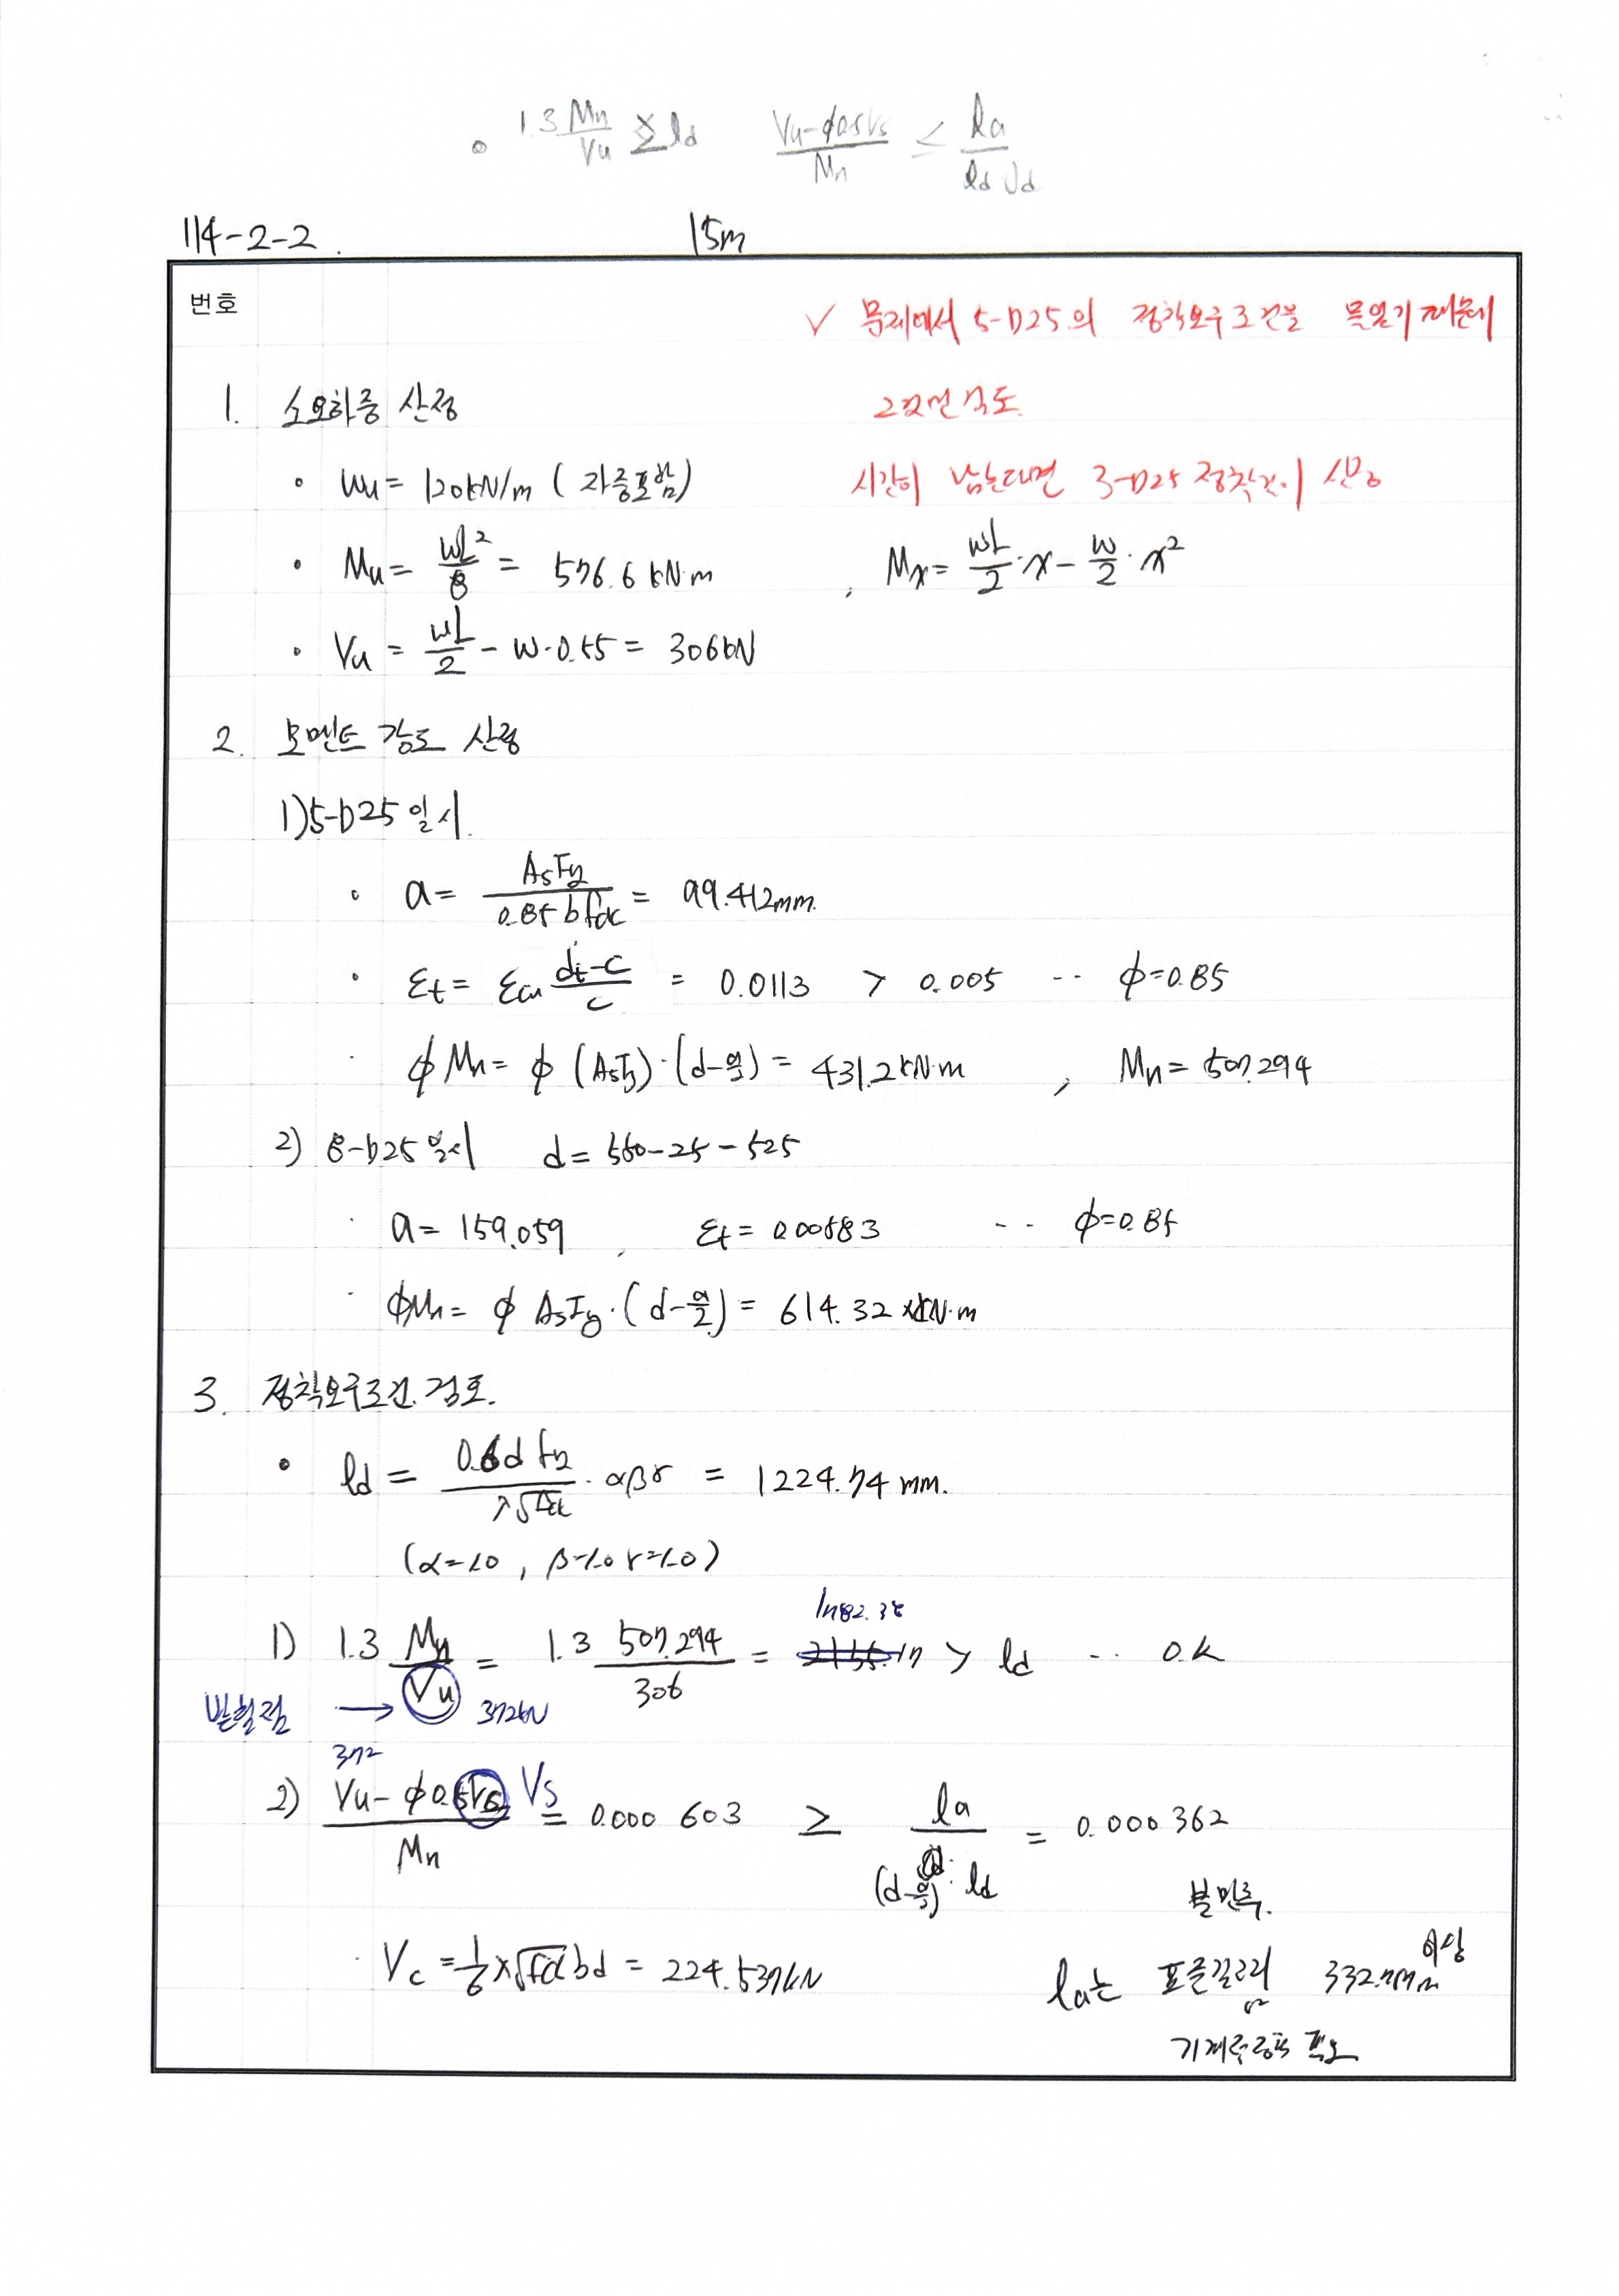 1.3 Mn/Vu ≥ ld   (Vu-φ0.5Vs)/Mn ≤ la/(ld Jd)
114-2-2.   15m
번호
✓ 문제에서 5-D25의 정착요구조건을 물었기 때문에
1. 소요하중 산정
2차선 검도.
• wu = 120kN/m (자중포함)
시간이 남는다면 3-D25 정착길이 산정
• Mu = wL²/8 = 576.6 kN·m , Mx = wL/2·x - w/2·x²
• Vu = wL/2 - w·0.55 = 306kN
2. 모멘트 강도 산정
1) 5-D25 일시.
• a = AsFy/(0.85 b fck) = 99.412mm.
• εt = εcu (dt-c)/c = 0.0113 > 0.005 ·· φ=0.85
· φMn = φ (AsFy)·(d-a/2) = 431.2kN·m , Mn = 507.294
2) 8-D25 일시 d = 550-25-525
· a = 159.059 , εt = 0.00583 ·· φ=0.85
· φMn = φ AsFy·(d-a/2) = 614.32 kN·m
3. 정착요구조건 검토.
• ld = 0.6d fy/(λ√fck)·αβγ = 1224.74 mm.
(α=1.0 , β=1.0 γ=1.0)
1782.38
1) 1.3 Mn/Vu = 1.3 507.294/306 = > ld ·· O.K
변헐점 → 372kN
372
2) (Vu-φ0.5Vs)/Mn Vs = 0.000 603 ≥ la/((d-a/2)·ld) = 0.000362
불만족.
· Vc = 1/6×√fck bd = 224.537kN
la는 표준갈고리 332.7mm 이상
or
기계적 정착 필요